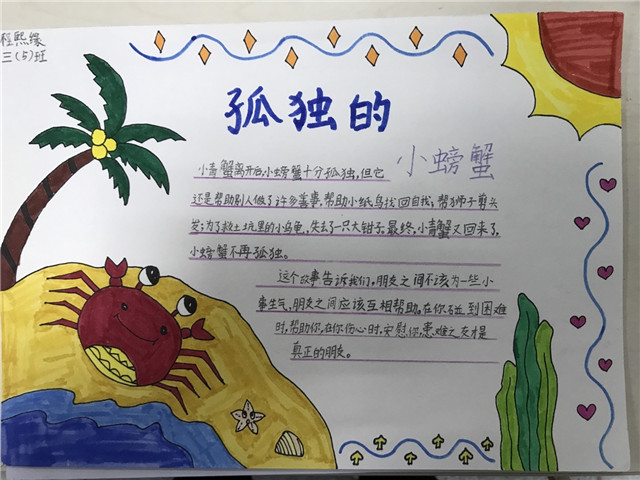 程熙缘
三(5)班
孤独的
小螃蟹
小青蟹离开后,小螃蟹十分孤独,但它
还是帮助别人做了许多善事,帮助小纸鸟找回自我,帮狮子剪头
发;为了救土坑里的小乌龟,失去了一只大钳子。最终,小青蟹又回来了,
小螃蟹不再孤独。
这个故事告诉我们,朋友之间不该为一些小
事生气,朋友之间应该互相帮助。在你碰到困难
时,帮助你,在你伤心时,安慰你,患难之友才是
真正的朋友。